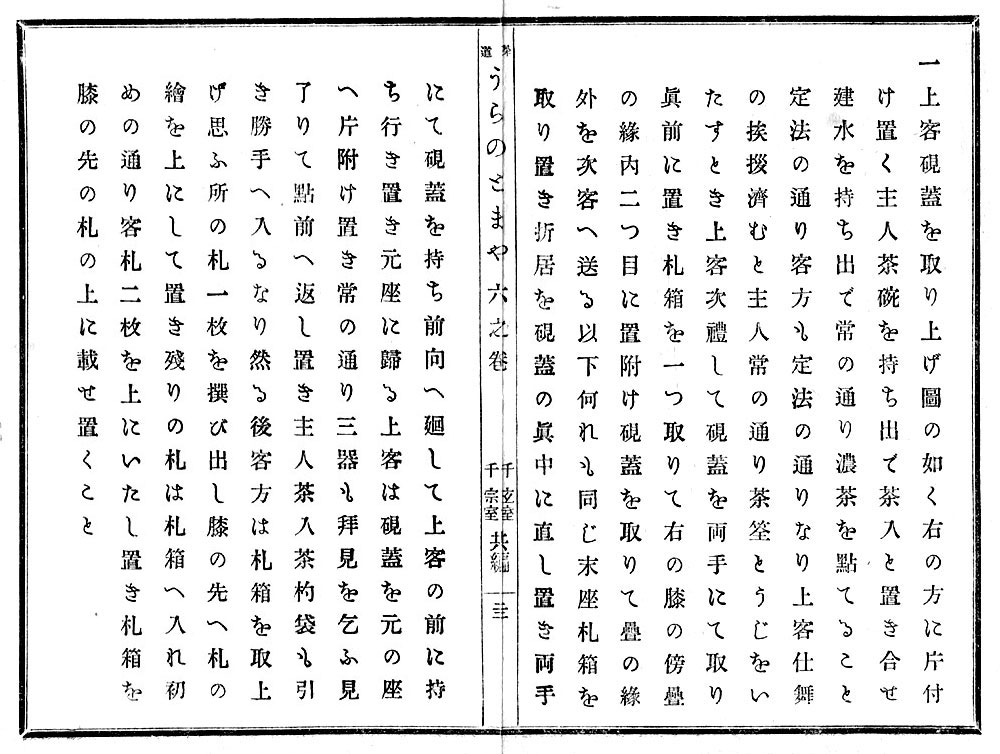 一上客硯蓋を取り上げ圖の如く右の方に片付
け置く主人茶碗を持ち出で茶入と置き合せ
建水を持ち出で常の通り濃茶を點てること
定法の通り客方も定法の通りなり上客仕舞
の挨拶濟むと主人常の通り茶筌とうじをい
たすとき上客次禮して硯蓋を両手にて取り
眞前に置き札箱を一つ取りて右の膝の傍疊
の緣內二つ目に置附け硯蓋を取りて疊の緣
外を次客へ送る以下何れも同じ末座札箱を
取り置き折居を硯蓋の眞中に直し置き両手
茶道
うらのとまや六之卷
千玄室
千宗室
共編
三三
にて硯蓋を持ち前向へ廻して上客の前に持
ち行き置き元座に歸る上客は硯蓋を元の座
へ片附け置き常の通り三器も拜見を乞ふ見
了りて點前へ返し置き主人茶入茶杓袋も引
き勝手へ入るなり然る後客方は札箱を取上
げ思ふ所の札一枚を撰び出し膝の先へ札の
繪を上にして置き殘りの札は札箱へ入れ初
めの通り客札二枚を上にいたし置き札箱を
膝の先の札の上に載せ置くこと